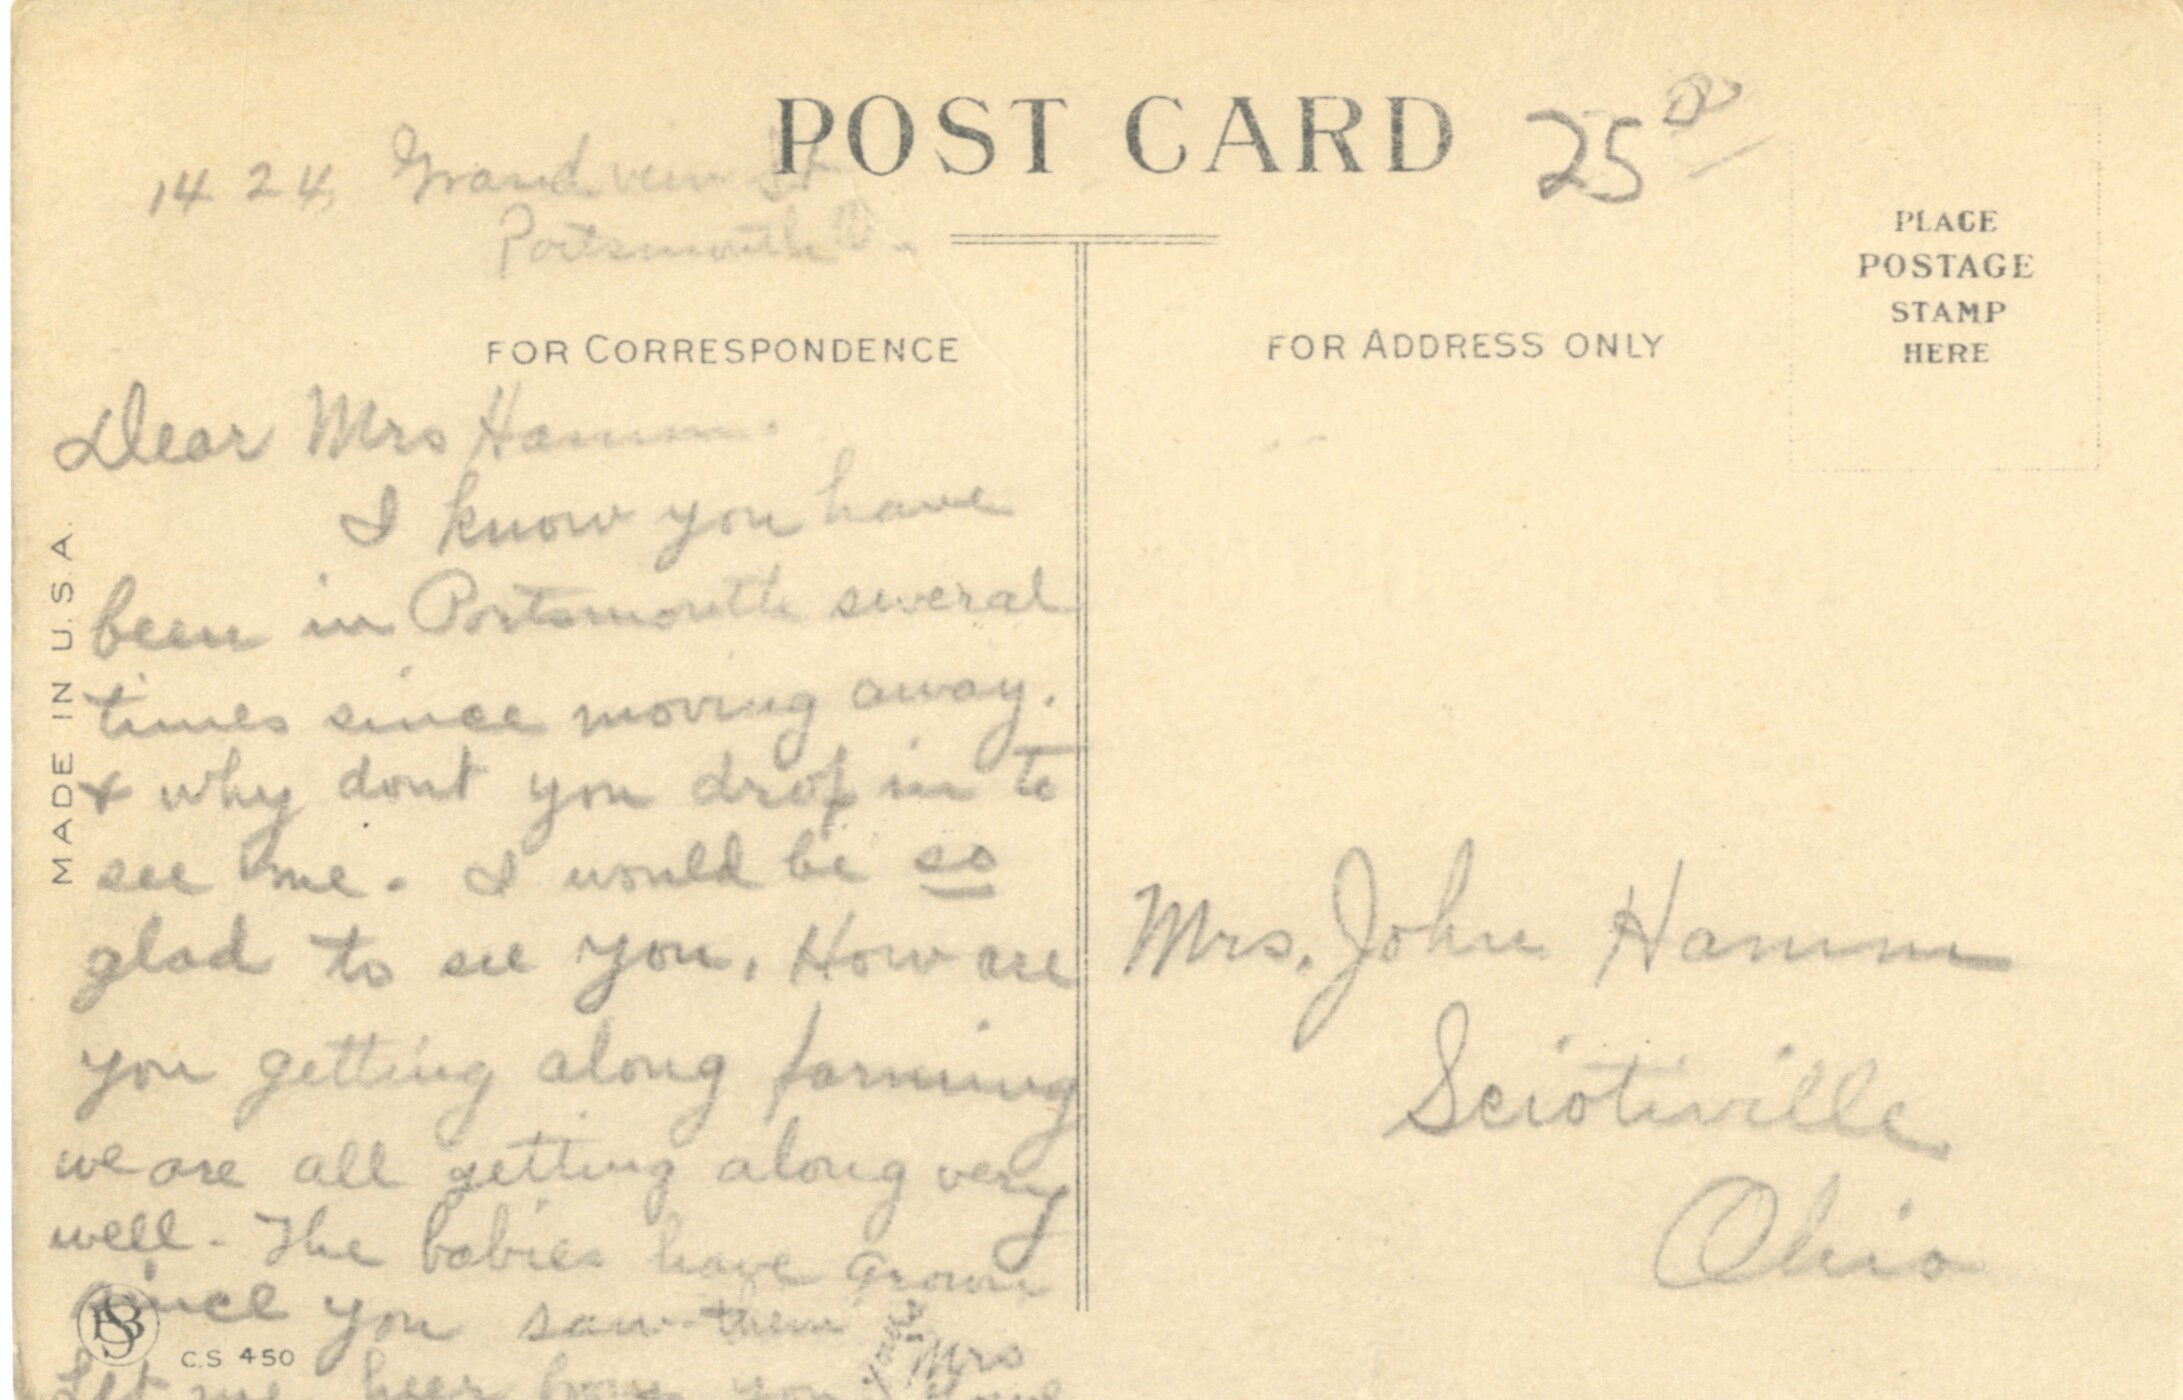 POST CARD
25
1424 Grandview St
Portsmouth O.
PLACE
POSTAGE
STAMP
HERE
FOR CORRESPONDENCE
FOR ADDRESS ONLY
MADE IN U.S.A.
Dear Mrs Hamm.
I know you have
been in Portsmouth several
times since moving away.
& why dont you drop in to
see me. I would be so
glad to see you. How are
you getting along farming
we are all getting along very
well. The babies have grown
since you saw them
Let me hear from you
Mrs
Mrs. John Hamm
Sciotiville
Ohio
C.S 450